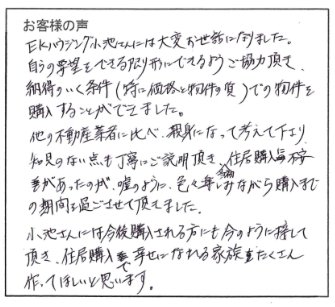 お客様の声
EKハウジング小池さんには大変お世話になりました。
自分の要望をできる限り形にできるようご協力頂き、
納得のいく条件(特に価格と物件の質)での物件を
購入することができました。
他の不動産業者に比べ、親身になって考えて下さり
知見のない点も丁寧にご説明頂き、住居購入
があったのが、嘘のように、色々楽しみながら購入まで
の期間を過ごさせて頂きました。
小池さんには今後購入される方にも今のように接して
頂き、住居購入で幸せになれる家族をたくさん
作ってほしいと思います。